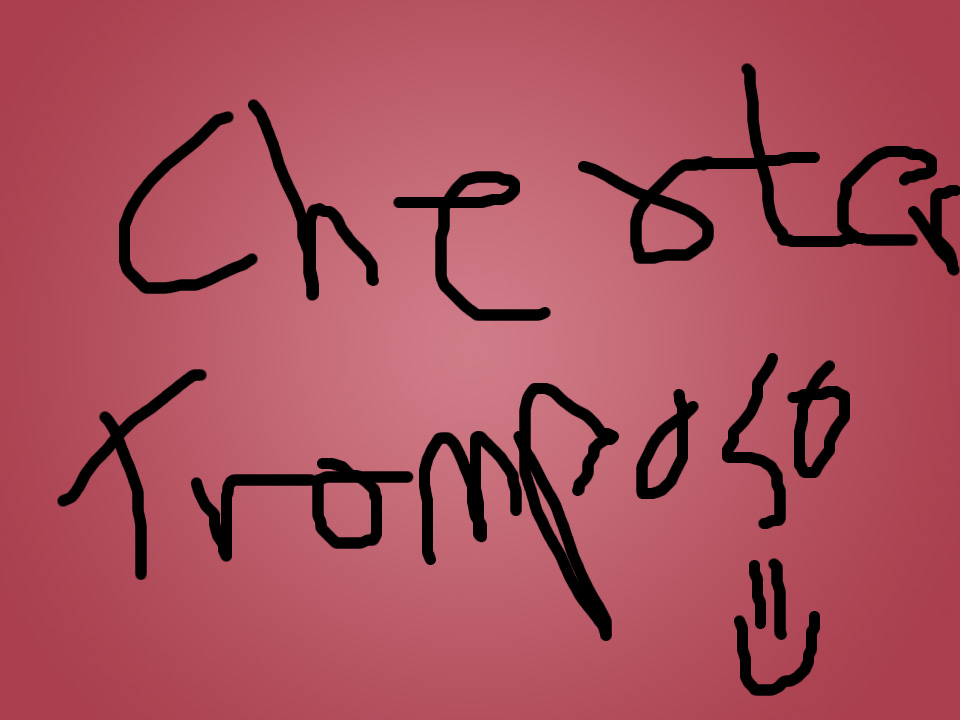 Chester
Tromposo